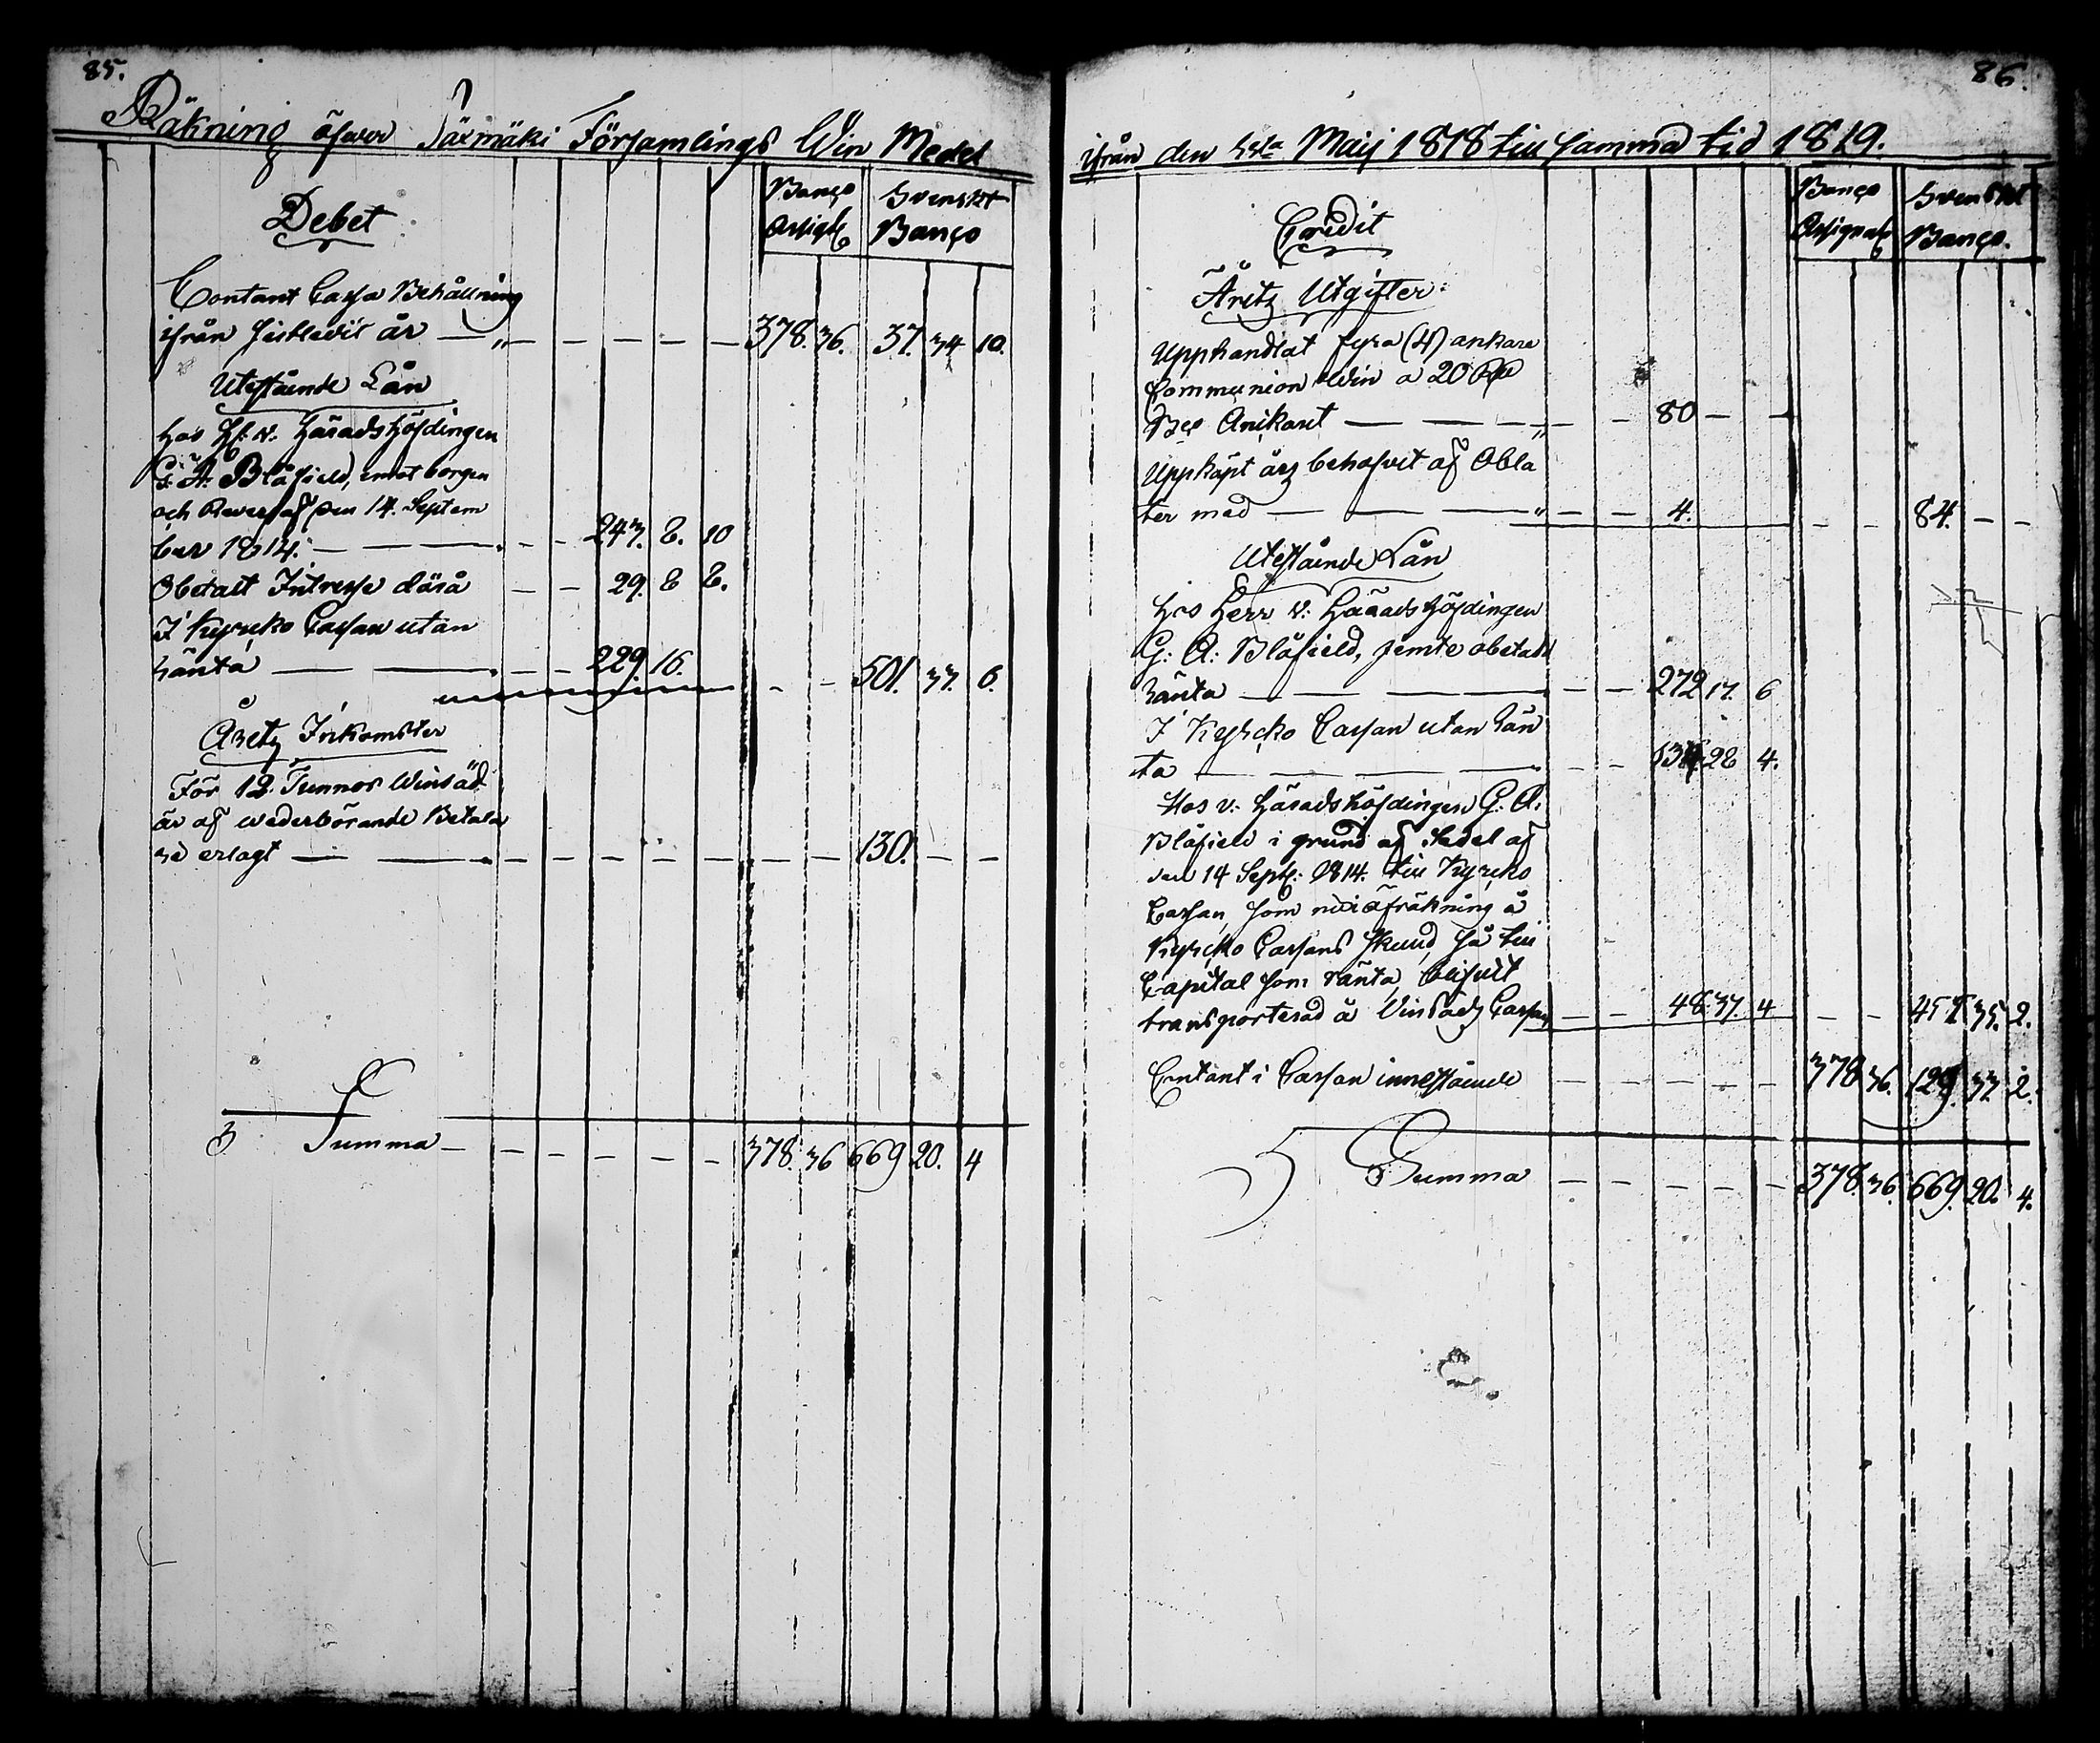 85.
Räkning öfwer Säxmäki Församlings Win Medel
Debet
Banco Assigt:
Svenskt Banco
Contant Cassa Behållning
ifrån sistledit år — 378. 36. 37. 34 10.
Utestående Lån
hos H: v. Häradshöfdingen
G: A: Blåfield, emot borgen
och Revers af den 14. Septem
ber 1814. — 243. 8. 10
Obetalt Intresse därå — 29. 8 8.
I Kyrcko Cassan utan
ränta — 229. 16. — 501. 33. 6.
Åretz Inkomster
För 12 Tunnor Winsäd
är af wederbörande Betala
re erlagt — 130. — —
Summa — 378. 36 669 20. 4
86.
ifrån den 1sta Maij 1818 till samma tid 1819.
Credit
Banco Assignat:
Svenskt Banco.
Åretz Utgifter
Upphandlat fyra (4) ankare
Communion Win a 20 R
Bco Ankaret — 80 —
Uppköpt årz behofvet af Obla
ter med — 4. — 84. — —
Utestående Lån
hos Herr v: Häradshöfdingen
G: A: Blåfield, jemte obetald
ränta — 272 17. 6
I Kyrcko Cassan utan rän
ta — 134. 28 4.
Hos v. Häradshöfdingen G: A:
Blåfield i grund af Sedel af
den 14 Sept: 1814. till Kyrcko
Cassan, som nu i afräkning å
Kyrcko Cassans skuld, så till
Capital som ränta, blifvit
transporterad å Winsädz Cassan — 48. 37. 4 — 455 35. 2.
Contant i Cassan innestående — 378 36. 129. 33 2.
Summa — 378. 36. 669. 20. 4.